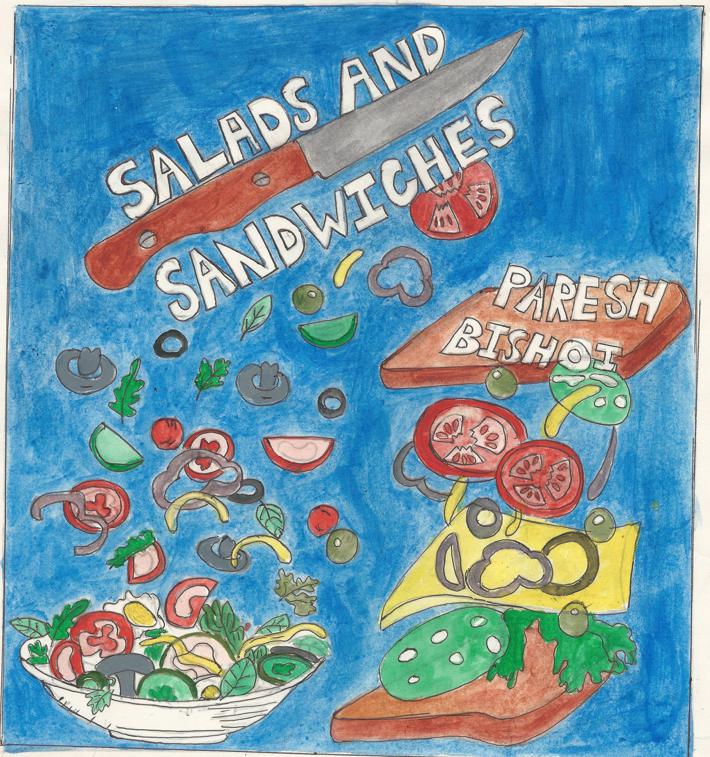 SALADS AND
SANDWICHES
PARESH
BISHOI